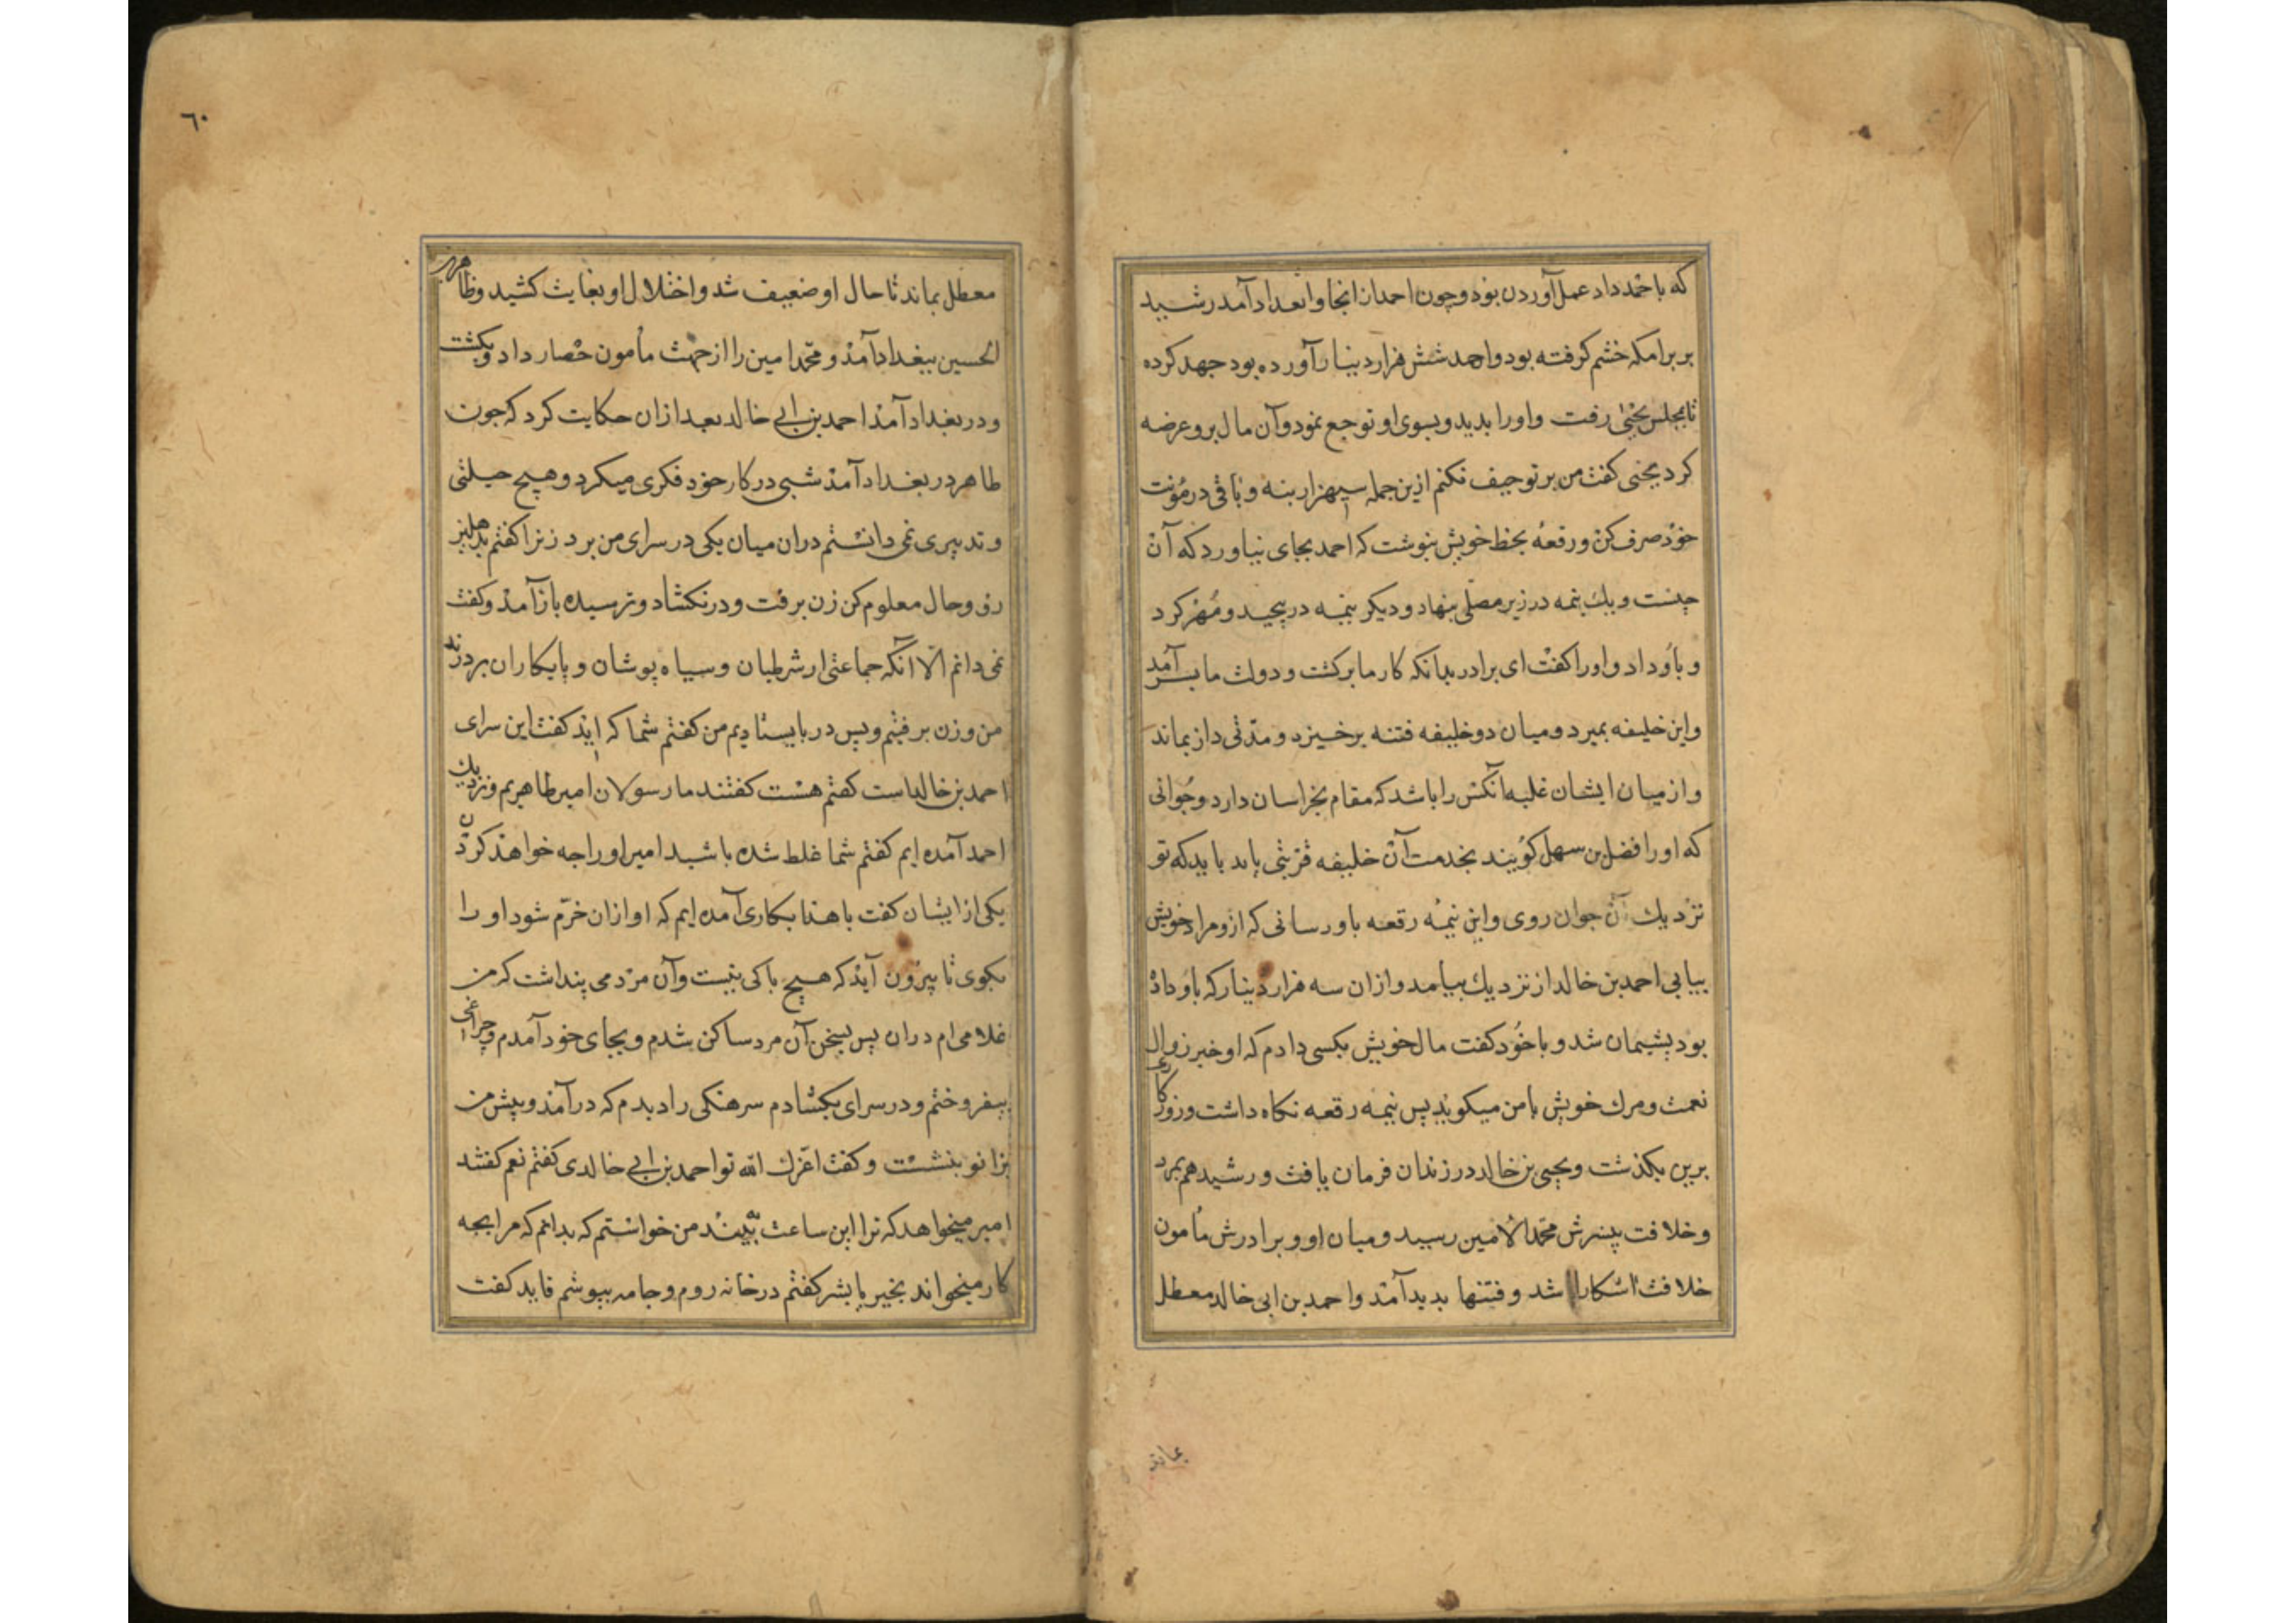 که باحمد داد عمل آوردن بوذ و چون احمد از انجا وابغداد آمد رشید
بر برامکه خشم کرفته بود و احمد شش هزار دینار آورده بود جهد کرده
تا بمجلس یحیی رفت واورا بدید و بسوی او توجع نمود وآن مال برو عرضه
کرد یحیی کفت من بر تو حیف نکنم ازین جمله سیهزار بنه و باقی در مؤنت
خوذ صرف کن و رقعهٔ بخط خویش بنوشت که احمد بجای نیاورد که آن
چیست و یک نیمه در زیر مصلی بنهاد و دیکر نیمه در پیچید و مُهر کرد
و باو داد و اورا کفت ای برادر بدانکه کار ما برکشت و دولت ما بسر آمد
واین خلیفه بمیرد و میان دو خلیفه فتنه برخیزد و مدّتی دراز بماند
واز میان ایشان غلبه آنکس را باشد که مقام بخراسان دارد و جُوانی
که اورا فضل بن سهل کویند بخدمت آن خلیفه قربتی یابد باید که تو
نزدیک آن جوان روی واین نیمهٔ رقعه باو رسانی که ازو مراد خویش
بیابی احمد بن خالد از نزدیک بیامد و ازان سه هزار دینار که باو داذ
بود پشیمان شد و با خُود کفت مال خویش بکسی دادم که او خبر زوال
نعمت و مرک خویش بامن میکوید پس نیمه رقعه نکاه داشت و روزکاری
برین بکذشت و یحیی بن خالد در زندان فرمان یافت و رشید هم بمرد
و خلافت بپسرش محمد الامین رسید و میان او و برادرش مأمون
خلافت اشکارا شد و فتنها بدید آمذ و احمد بن ابی خالد معطل
بماند
٦٠
معطل بماند تا حال او ضعیف شد و اختلال او بغایت کشید و طاهر بن
الحسین ببغداد آمذ و محمد امین را از جهت مأمون حصار داد و بکشت
و در بغداد آمذ احمد بن ابی خالد بعد ازان حکایت کرد که جون
طاهر در بغداد آمذ شبی در کار خوذ فکری میکرد و هیچ حیلتی
و تدبیری نمی دانستم دران میان یکی در سرای من بزد زنرا کفتم بدهلیز
رو و حال معلوم کن زن برفت و در نکشاد و ترسیده باز آمذ و کفت
نمی دانم الا انکه جماعتی از شرطیان و سیاه پوشان و پایکاران بر درند
من و زن برفتیم و پس در بایستادیم من کفتم شما که اید کفت این سرای
احمد بن خالد است کفتم هست کفتند ما رسولان امیر طاهریم و نزدیک
احمد آمده ایم کفتم شما غلط شده باشید امیر اورا چه خواهذ کردن
یکی از ایشان کفت با هذا بکاری آمده ایم که او ازان خرّم شود او را
بکوی تا بیرون آید که هیچ باکی نیست وآن مرد می پنداشت که من
غلامی ام دران پس بسخن آن مرد ساکن شدم و بجای خود آمدم و چراغی
بیفروختم و در سرای بکشادم سرهنکی را دیدم که درآمذ و پیش من
بزانو بنشست و کفت اعزک الله تو احمد بن ابی خالدی کفتم نعم کفتند
امیر میخواهد که ترا این ساعت ببیند من خواستم که بدانم که مرا بچه
کار میخواند بخیر یا بشر کفتم در خانه روم و جامه بپوشم قاید کفت